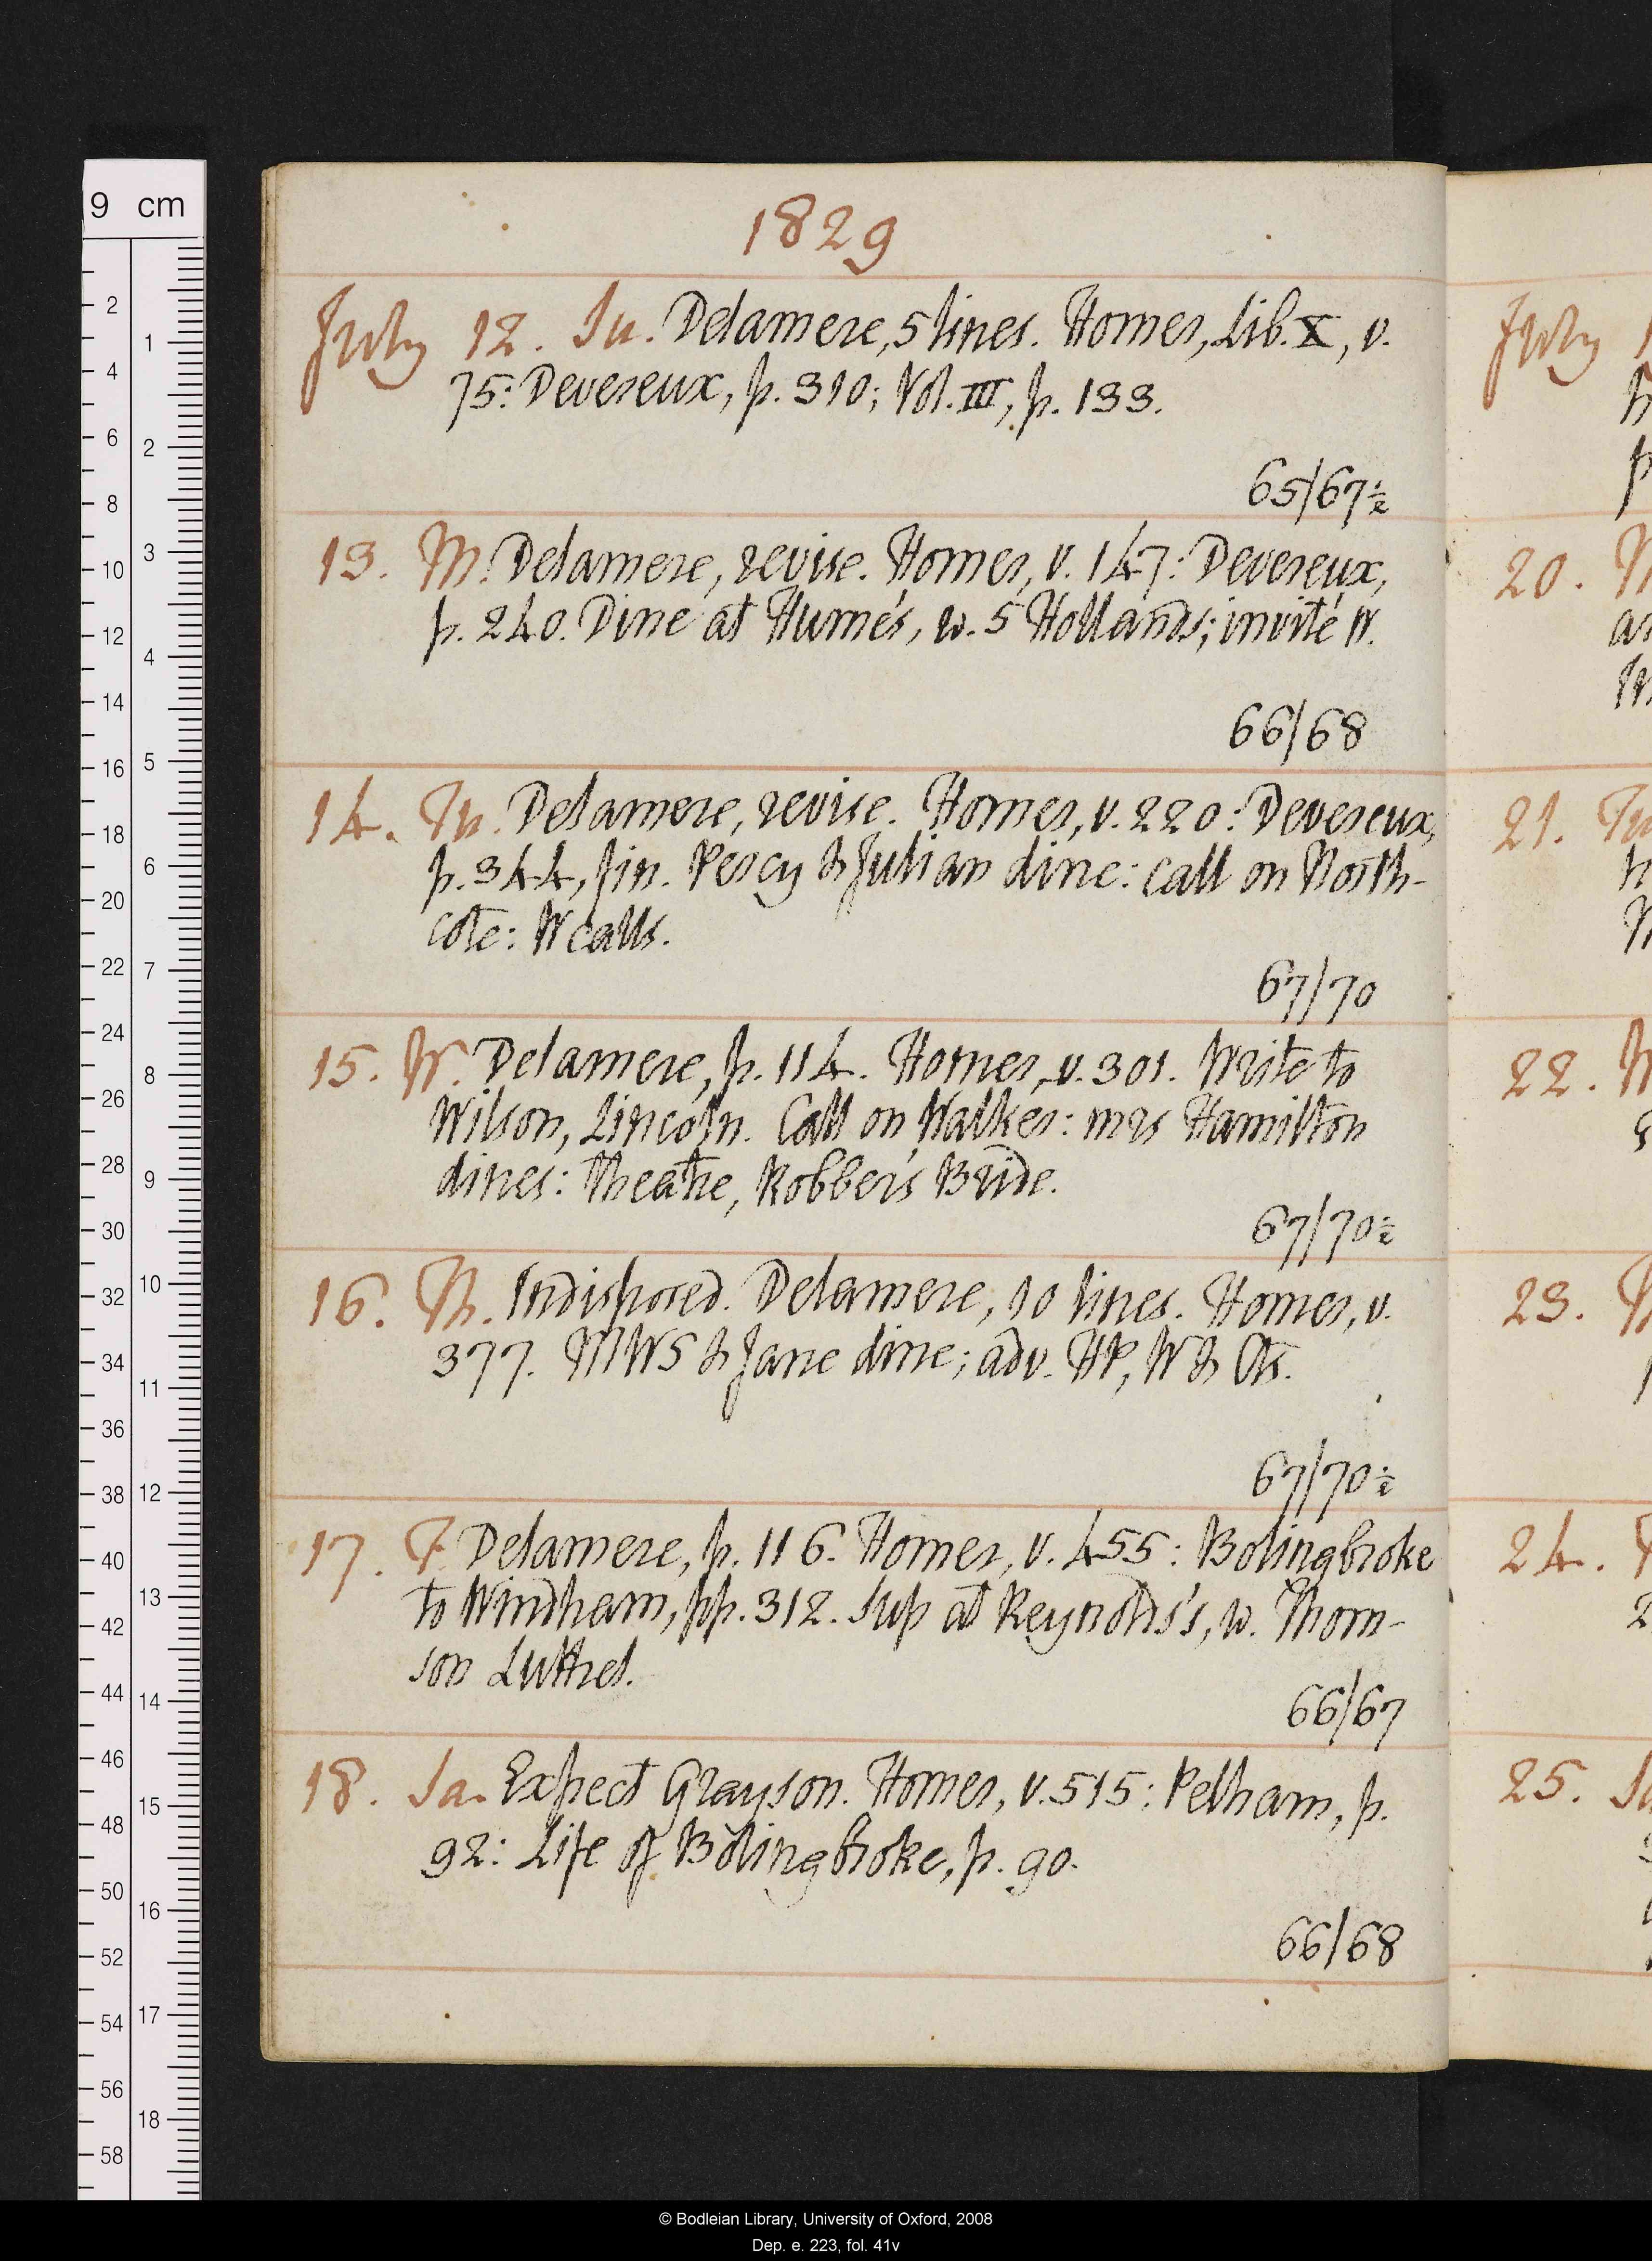 1829
July 12. Su. Delamere, 5 lines. Homer, Lib. X, v.
75: Devereux, p. 310; Vol. III, p. 133.
65/67½
13. M. Delamere, revise. Homer, v. 147: Devereux,
p. 240. Dine at Hume's, w. 5 Hollands; invité W.
66/68
14. Tu. Delamere, revise. Homer, v. 220: Devereux,
p. 344, fin. Percy & Julian dine: call on North-
cote: W calls.
67/70
15. W. Delamere, p. 114. Homer, v. 301. Write to
Wilson, Lincoln. Call on Walker: mrs Hamilton
dines: Theatre, Robber's Bride.
67/70½
16. Th. Indisposed. Delamere, 10 lines. Homer, v.
377. MWS & Jane dine; adv. HP, W &
67/70½
17. F. Delamere, p. 116. Homer, v. 455: Bolingbroke
to Windham, pp. 312. Sup at Reynolds's, w. Thom-
son Luttrel.
66/67
18. Sa. Expect Grayson. Homer, v. 515: Pelham, p.
92: Life of Bolingbroke, p. 90.
66/68
July
20.
21. Tu
22.
23.
24.
25. Sa
9 cm
2
4
6
8
10
12
14
16
18
20
22
24
26
28
30
32
34
36
38
40
42
44
46
48
50
52
54
56
58
1
2
3
4
5
6
7
8
9
10
11
12
13
14
15
16
17
18
© Bodleian Library, University of Oxford, 2008
Dep. e. 223, fol. 41v